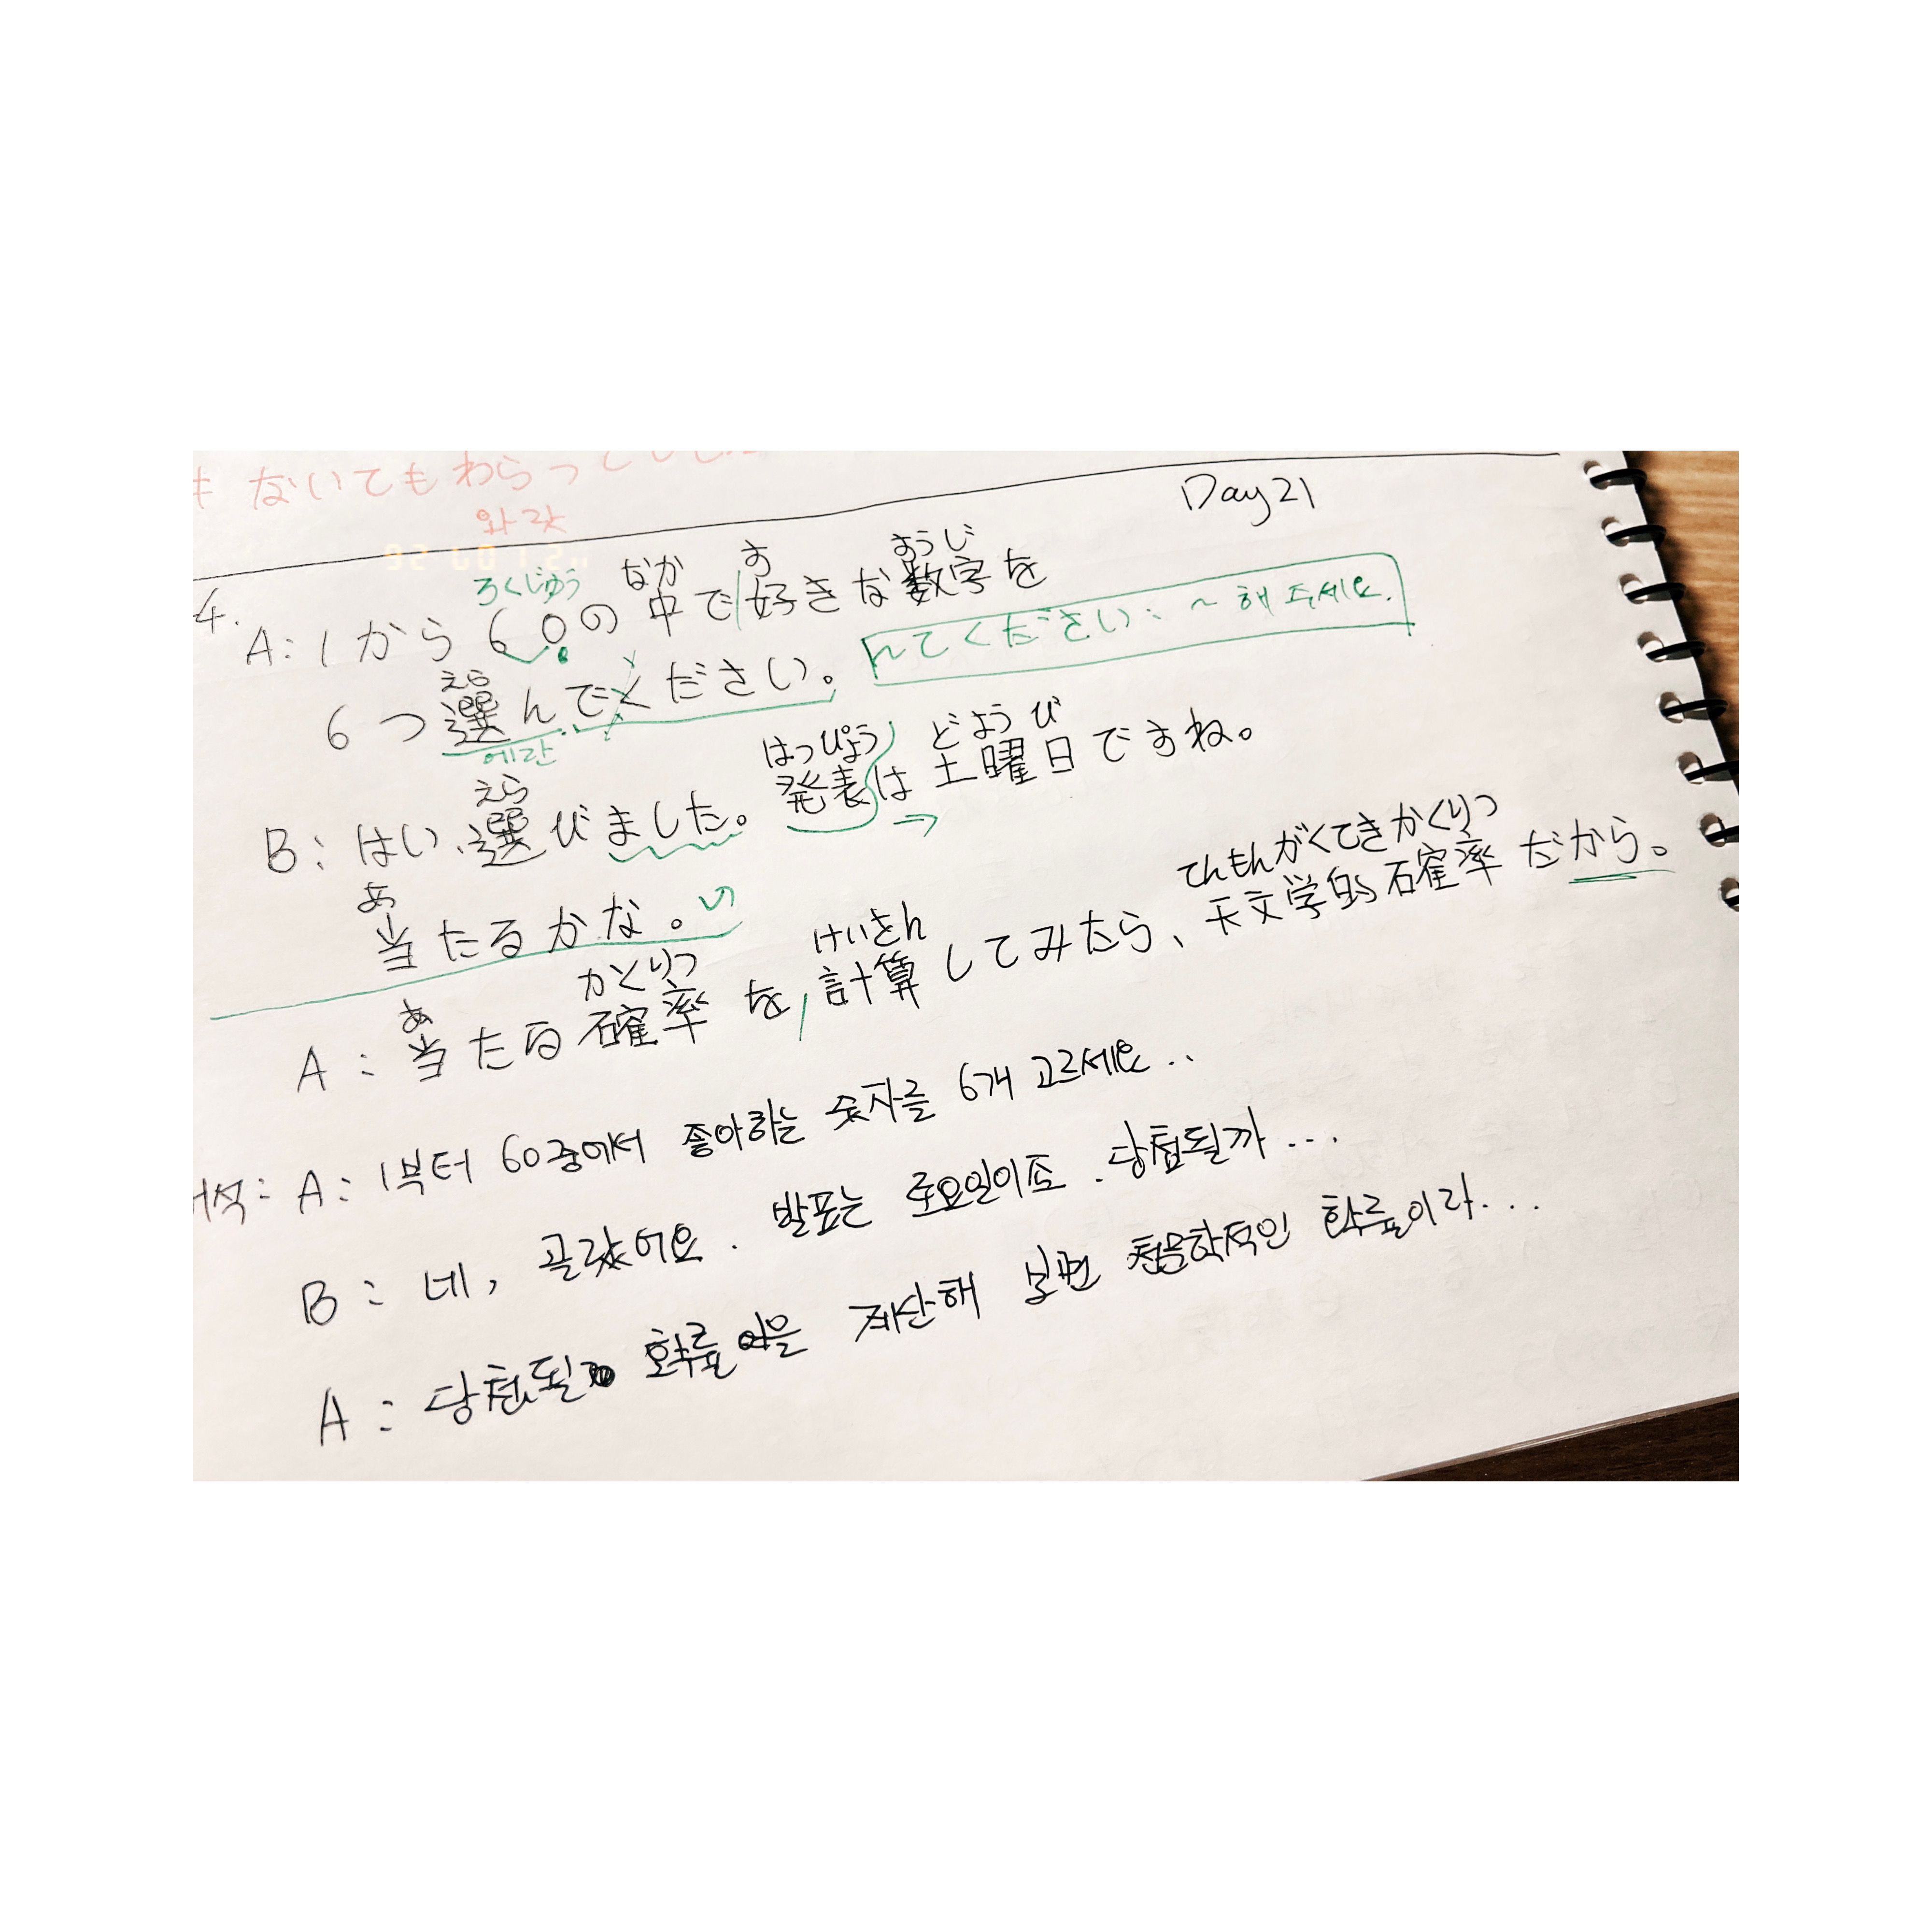 ないてもわらって
와랏
Day 21
ろくじゅう なか す ようじ
4. A: 1から60の中で好きな数字を
~てください: ~해 주세요.
えら
6つ選んでください。
에란
えら はっぴょう どようび
B: はい、選びました。発表は土曜日ですね。
あ
当たるかな。
あ かくりつ けいさん てんもんがくてきかくりつ
A: 当たる確率を計算してみたら、天文学的確率だから。
석: A: 1부터 60중에서 좋아하는 숫자를 6개 고르세요..
B: 네, 골랐어요. 발표는 토요일이죠. 당첨될까...
A: 당첨될 확률을 계산해 보면 천문학적인 확률이라...